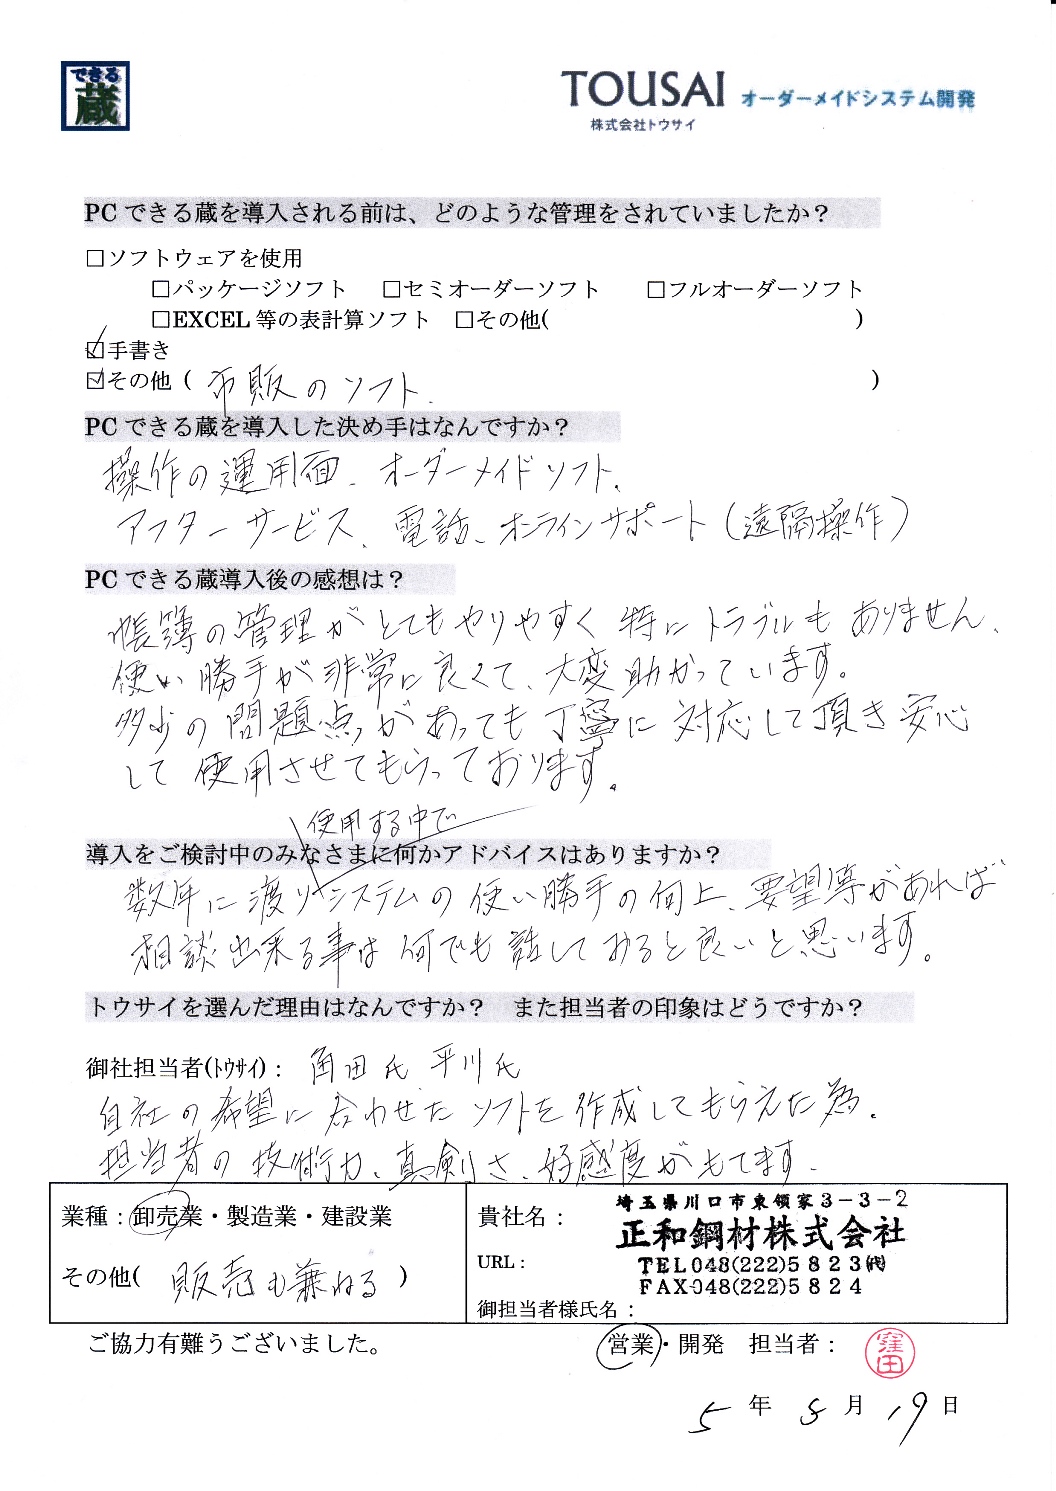 できる
蔵
TOUSAI オーダーメイドシステム開発
株式会社トウサイ
PCできる蔵を導入される前は、どのような管理をされていましたか？
□ソフトウェアを使用
□パッケージソフト □セミオーダーソフト □フルオーダーソフト
□EXCEL等の表計算ソフト □その他( )
☑手書き
☑その他（ 市販のソフト. ）
PCできる蔵を導入した決め手はなんですか？
操作の運用面、オーダーメイドソフト、
アフターサービス、電話、オンラインサポート（遠隔操作）
PCできる蔵導入後の感想は？
帳簿の管理がとてもやりやすく特にトラブルもありません、
使い勝手が非常に良くて、大変助かっています。
多少の問題点があっても丁寧に対応して頂き安心
して使用させてもらっております。
使用する中で
導入をご検討中のみなさまに何かアドバイスはありますか？
数年に渡りシステムの使い勝手の向上、要望等があれば
相談出来る事は何でも話しておると良いと思います。
トウサイを選んだ理由はなんですか？ また担当者の印象はどうですか？
御社担当者(ﾄｳｻｲ)： 角田氏 平川氏
自社の希望に合わせたソフトを作成してもらえた為.
担当者の技術力、真剣さ、好感度がもてます.
業種：卸売業・製造業・建設業
その他( 販売も兼ねる )
貴社名： 埼玉県川口市東領家3-3-2
正和鋼材株式会社
URL： TEL048(222)5823㈹
FAX048(222)5824
御担当者様氏名：
ご協力有難うございました。 営業・開発 担当者： 窪田
5年8月19日